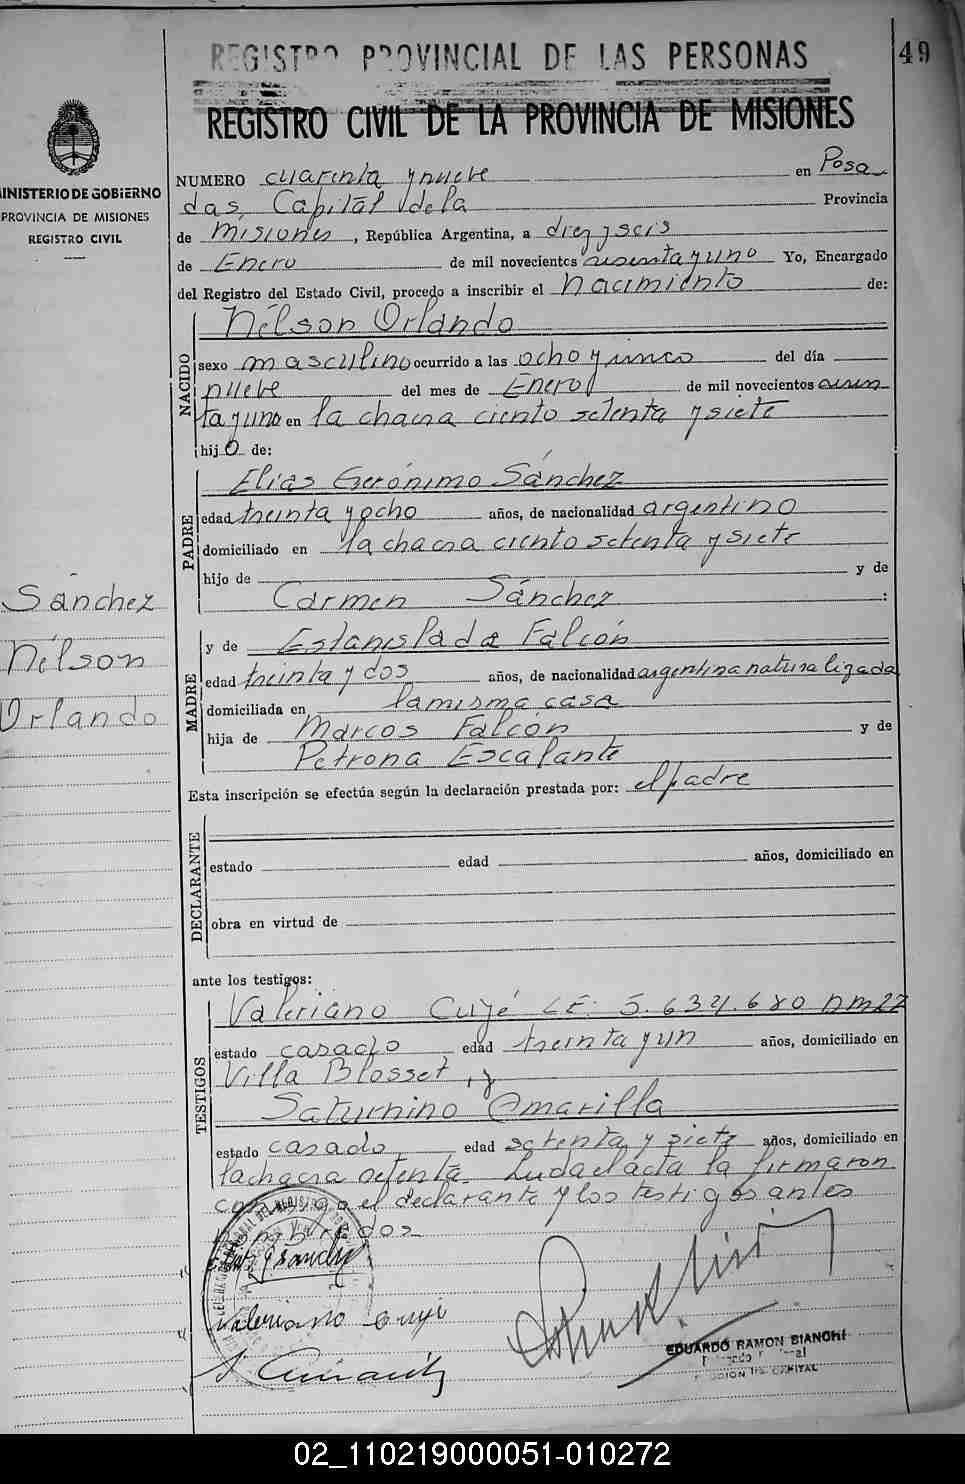 REGISTRO PROVINCIAL DE LAS PERSONAS
49
REGISTRO CIVIL DE LA PROVINCIA DE MISIONES
MINISTERIO DE GOBIERNO
PROVINCIA DE MISIONES
REGISTRO CIVIL
NUMERO cuarenta y nueve en Posa
das, Capital de la Provincia
de Misiones, República Argentina, a diez y seis
de Enero de mil novecientos sesenta y uno Yo, Encargado
del Registro del Estado Civil, procedo a inscribir el nacimiento de:
NACIDO
Nélson Orlando
sexo masculino ocurrido a las ocho y cinco del día
nueve del mes de Enero de mil novecientos sesen
ta y uno en la chacra ciento setenta y siete
hijo de:
PADRE
Elias Gerónimo Sánchez
edad treinta y ocho años, de nacionalidad argentino
domiciliado en la chacra ciento setenta y siete
hijo de y de
Carmen Sánchez :
Sánchez
Nélson
Orlando
MADRE
y de Estanislada Falcón
edad treinta y dos años, de nacionalidad argentina naturalizada
domiciliada en la misma casa
hija de Marcos Falcón y de
Petrona Escalante
Esta inscripción se efectúa según la declaración prestada por: el padre
DECLARANTE
estado edad años, domiciliado en
obra en virtud de
ante los testigos:
TESTIGOS
Valeriano Cuyé LE: 5.634.680 DM 27
estado casado edad treinta y un años, domiciliado en
Villa Blosset, y
Saturnino Amarilla
estado casado, edad setenta y siete años, domiciliado en
la chacra setenta. Leida el acta la firmaron
conmigo el declarante y los testigos antes
nombrados
Valeriano Cuyé
EDUARDO RAMON BIANCHI
CAPITAL
02_110219000051-010272